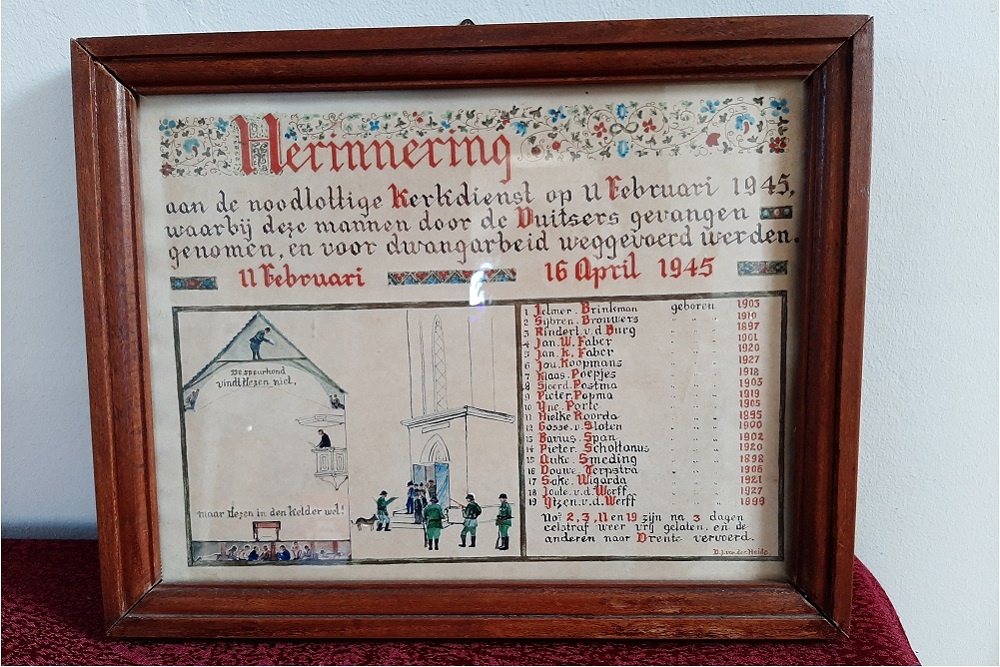 Herinnering
aan de noodlottige Kerkdienst op 11 Februari 1945,
waarbij deze mannen door de Duitsers gevangen
genomen, en voor dwangarbeid weggevoerd werden.
11 Februari 16 April 1945
De speurhond
vindt dezen niet,
maar dezen in den kelder wel!
1 Jelmer. Brinkman geboren 1903
2 Sijbren. Brouwers " " 1910
3 Rinderl. v. d Burg " " 1897
4 Jan. W. Faber " " 1901
5 Jan. K. Faber " " 1920
6 Jou. Koopmans " " 1927
7 Klaas. Poepjes " " 1918
8 Sjoerd. Postma " " 1903
9 Pieter. Popma " " 1919
10 Yne. Porte " " 1905
11 Hielke Roorda " " 1895
12 Gosse. v. Sloten " " 1900
13 Barius. Span " " 1902
14 Pieter. Scholtanus " " 1920
15 Auke. Smeding " " 1898
16 Douwe. Terpstra " " 1906
17 Sake. Wigarda " " 1921
18 Joute. v. d. Werff " " 1927
19 Ytzen. v. d. Werff " " 1899
No's 2, 3, 11 en 19 zijn na 3 dagen
celstraf weer vrij gelaten, en de
anderen naar Drente vervoerd.
D. J. van der Heide.